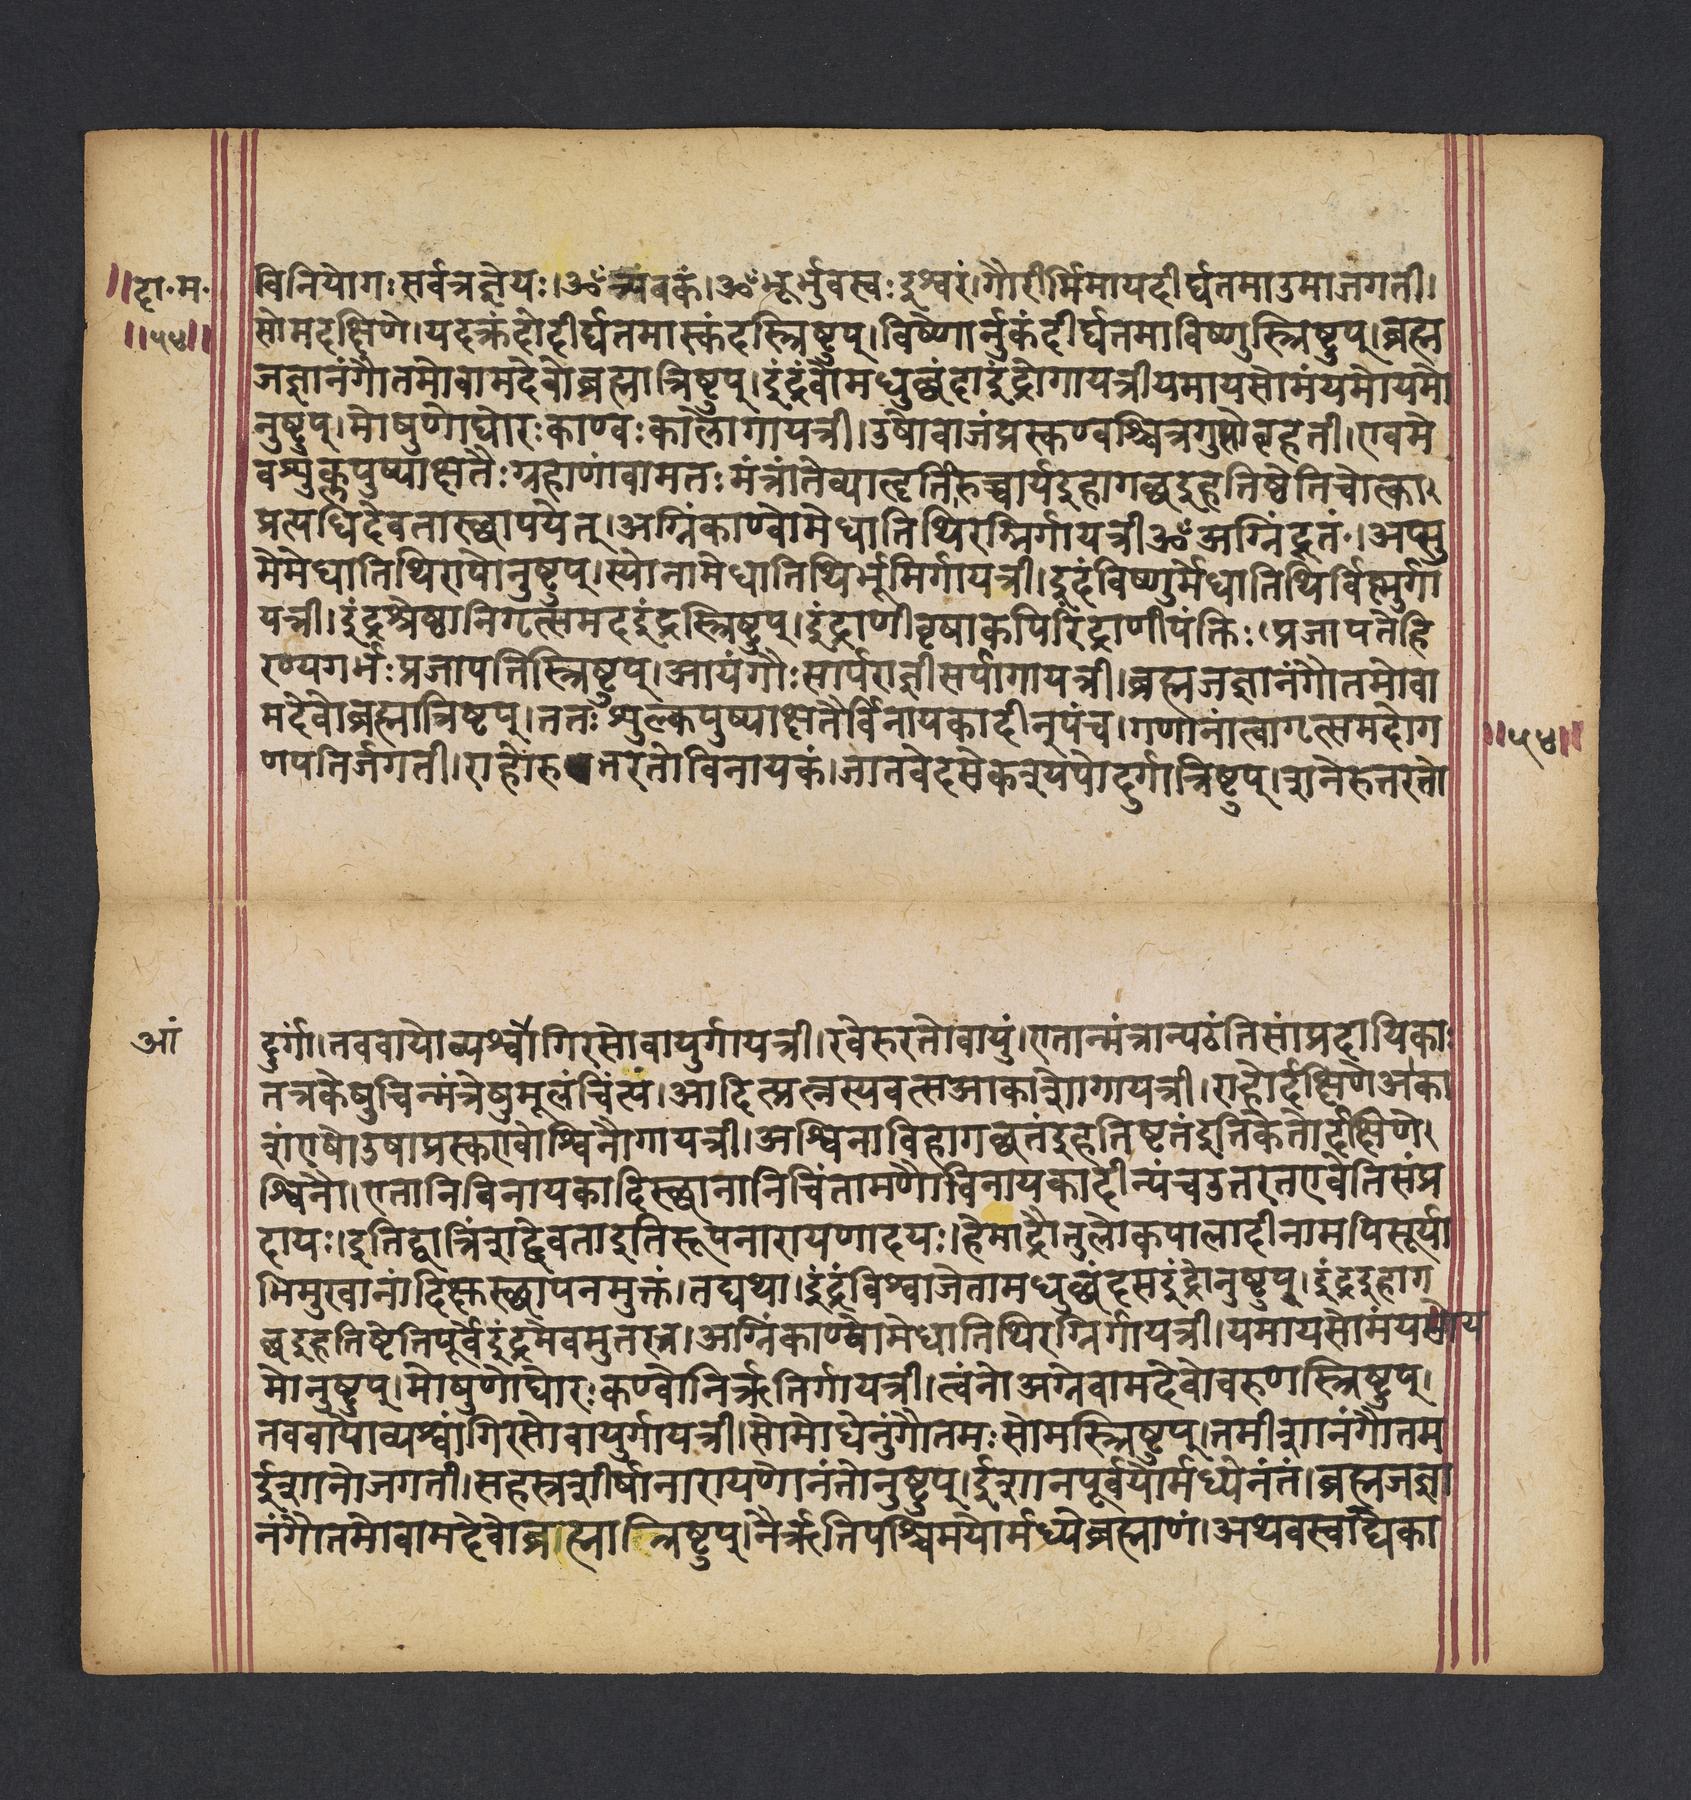 ॥दा॰म॰
॥५४॥
विनियोगःसर्वत्रज्ञेयः।ॐत्र्यंबकं।ॐभूर्भुवस्वःइश्वरं।गौरीर्मिमायदीर्घतमाउमाजगती।
सोमदक्षिणे।यदक्रंदोदीर्घतमास्कंदस्त्रिष्टुप्।विष्णोर्नुकंदीर्घतमाविष्णुस्त्रिष्टुप्।ब्रह्म
जज्ञानंगौतमोवामदेवोब्रह्मात्रिष्टुप्।इंद्रंवोमधुछंदाइंद्रोगायत्रीयमायसोमंयमोयमो
नुष्टुप्।मोषुणोघोरःकाण्वःकालोगायत्री।उषोवाजंप्रस्कण्वश्चित्रगुप्तोबृहती।एवमे
वश्युक्लपुष्पाक्षतैःग्रहाणांवामतःमंत्रांतेव्याहृतिरुच्चार्यइहागछइहतिष्ठेतिचोत्का
प्रत्यधिदेवतास्छापयेत्।अग्निंकाण्वोमेधातिथिरग्निर्गायत्रीॐअग्निंदूतं॰।अप्सु
मेमेधातिथिरापोनुष्टुप्।स्योनामेधातिथिर्भूमिर्गायत्री।इदंविष्णुर्मेधातिथिर्विष्णुर्गा
यत्री।इंद्रश्रेष्ठानिगृत्समदइंद्रस्त्रिष्टुप्।इंद्राणीवृषाकपिरिंद्राणीपंक्तिः।प्रजापतेहि
रण्यगर्भःप्रजापतिस्त्रिष्टुप्।आयंगौःसार्पराज्ञीसर्पागायत्री।ब्रह्मजज्ञानंगौतमोवा
मदेवोब्रह्मात्रिष्टुप्।ततःश्युल्कपुष्पाक्षतैर्विनायकादीनुपंच।गणानांत्वागृत्समदोग
णपतिर्जगती।राहोरुत्तरतोविनायकं।जातवेदसेकश्यपोदुर्गात्रिष्टुप्।शनेरुत्तरतो
॥५४॥
आं
दुर्गां।तववायोव्यश्वोंगिरसोवायुर्गायत्री।रवेरुरतोवायुं।एतान्मंत्रान्पठंतिसांप्रदायिकाः
तत्रकेषुचिन्मंत्रेषुमूलंचिंत्यं।आदित्प्रत्नस्यवत्सआकाशोगायत्री।राहोर्दक्षिणेआका
शंएषोउषाप्रस्कण्वोश्विनौगायत्री।अश्विनाविहागछतंइहतिष्टतंइतिकेतोर्दक्षिणे
श्विनौ।एतानिविनायकादिस्छानानिचिंतामणौविनायकादीन्पंचउत्तरतएवेतिसंप्र
दायः।इतिद्वात्रिंशद्देवताइतिरूपनारायणादयः।हेमाद्रौतुलोकपालादीनामपिसूर्या
भिमुखानांदिक्षस्छापनमुक्तं।तद्यथा।इंद्रंविश्वाजेतामधुछंदसइंद्रोनुष्टुप्।इंद्रइहाग
छइहतिष्टेतिपूर्वेइंद्रमेवमुतरत्र।अग्निंकाण्वोमेधातिथिरग्निर्गायत्री।यमायसोमंयमोय
मोनुष्टुप्।मोषुणोघोरःकण्वोनिर्ऋतिर्गायत्री।त्वंनोअग्नेवामदेवोवरुणस्त्रिष्टुप्।
तववायोव्यश्वांगिरसोवायुर्गायत्री।सोमोधेनुंगौतमःसोमस्त्रिष्टुप्।तमीशानंगौतम
ईशानोजगती।सहस्त्रशीर्षानारायणोनंतोनुष्टुप्।ईशानपूर्वयोर्मध्येनंतं।ब्रह्मजज्ञा
नंगौतमोवामदेवोब्रह्मात्रिष्टुप्।नैर्ऋतिपश्चिमयोर्मध्येब्रह्माणं।अथवस्वाद्येका